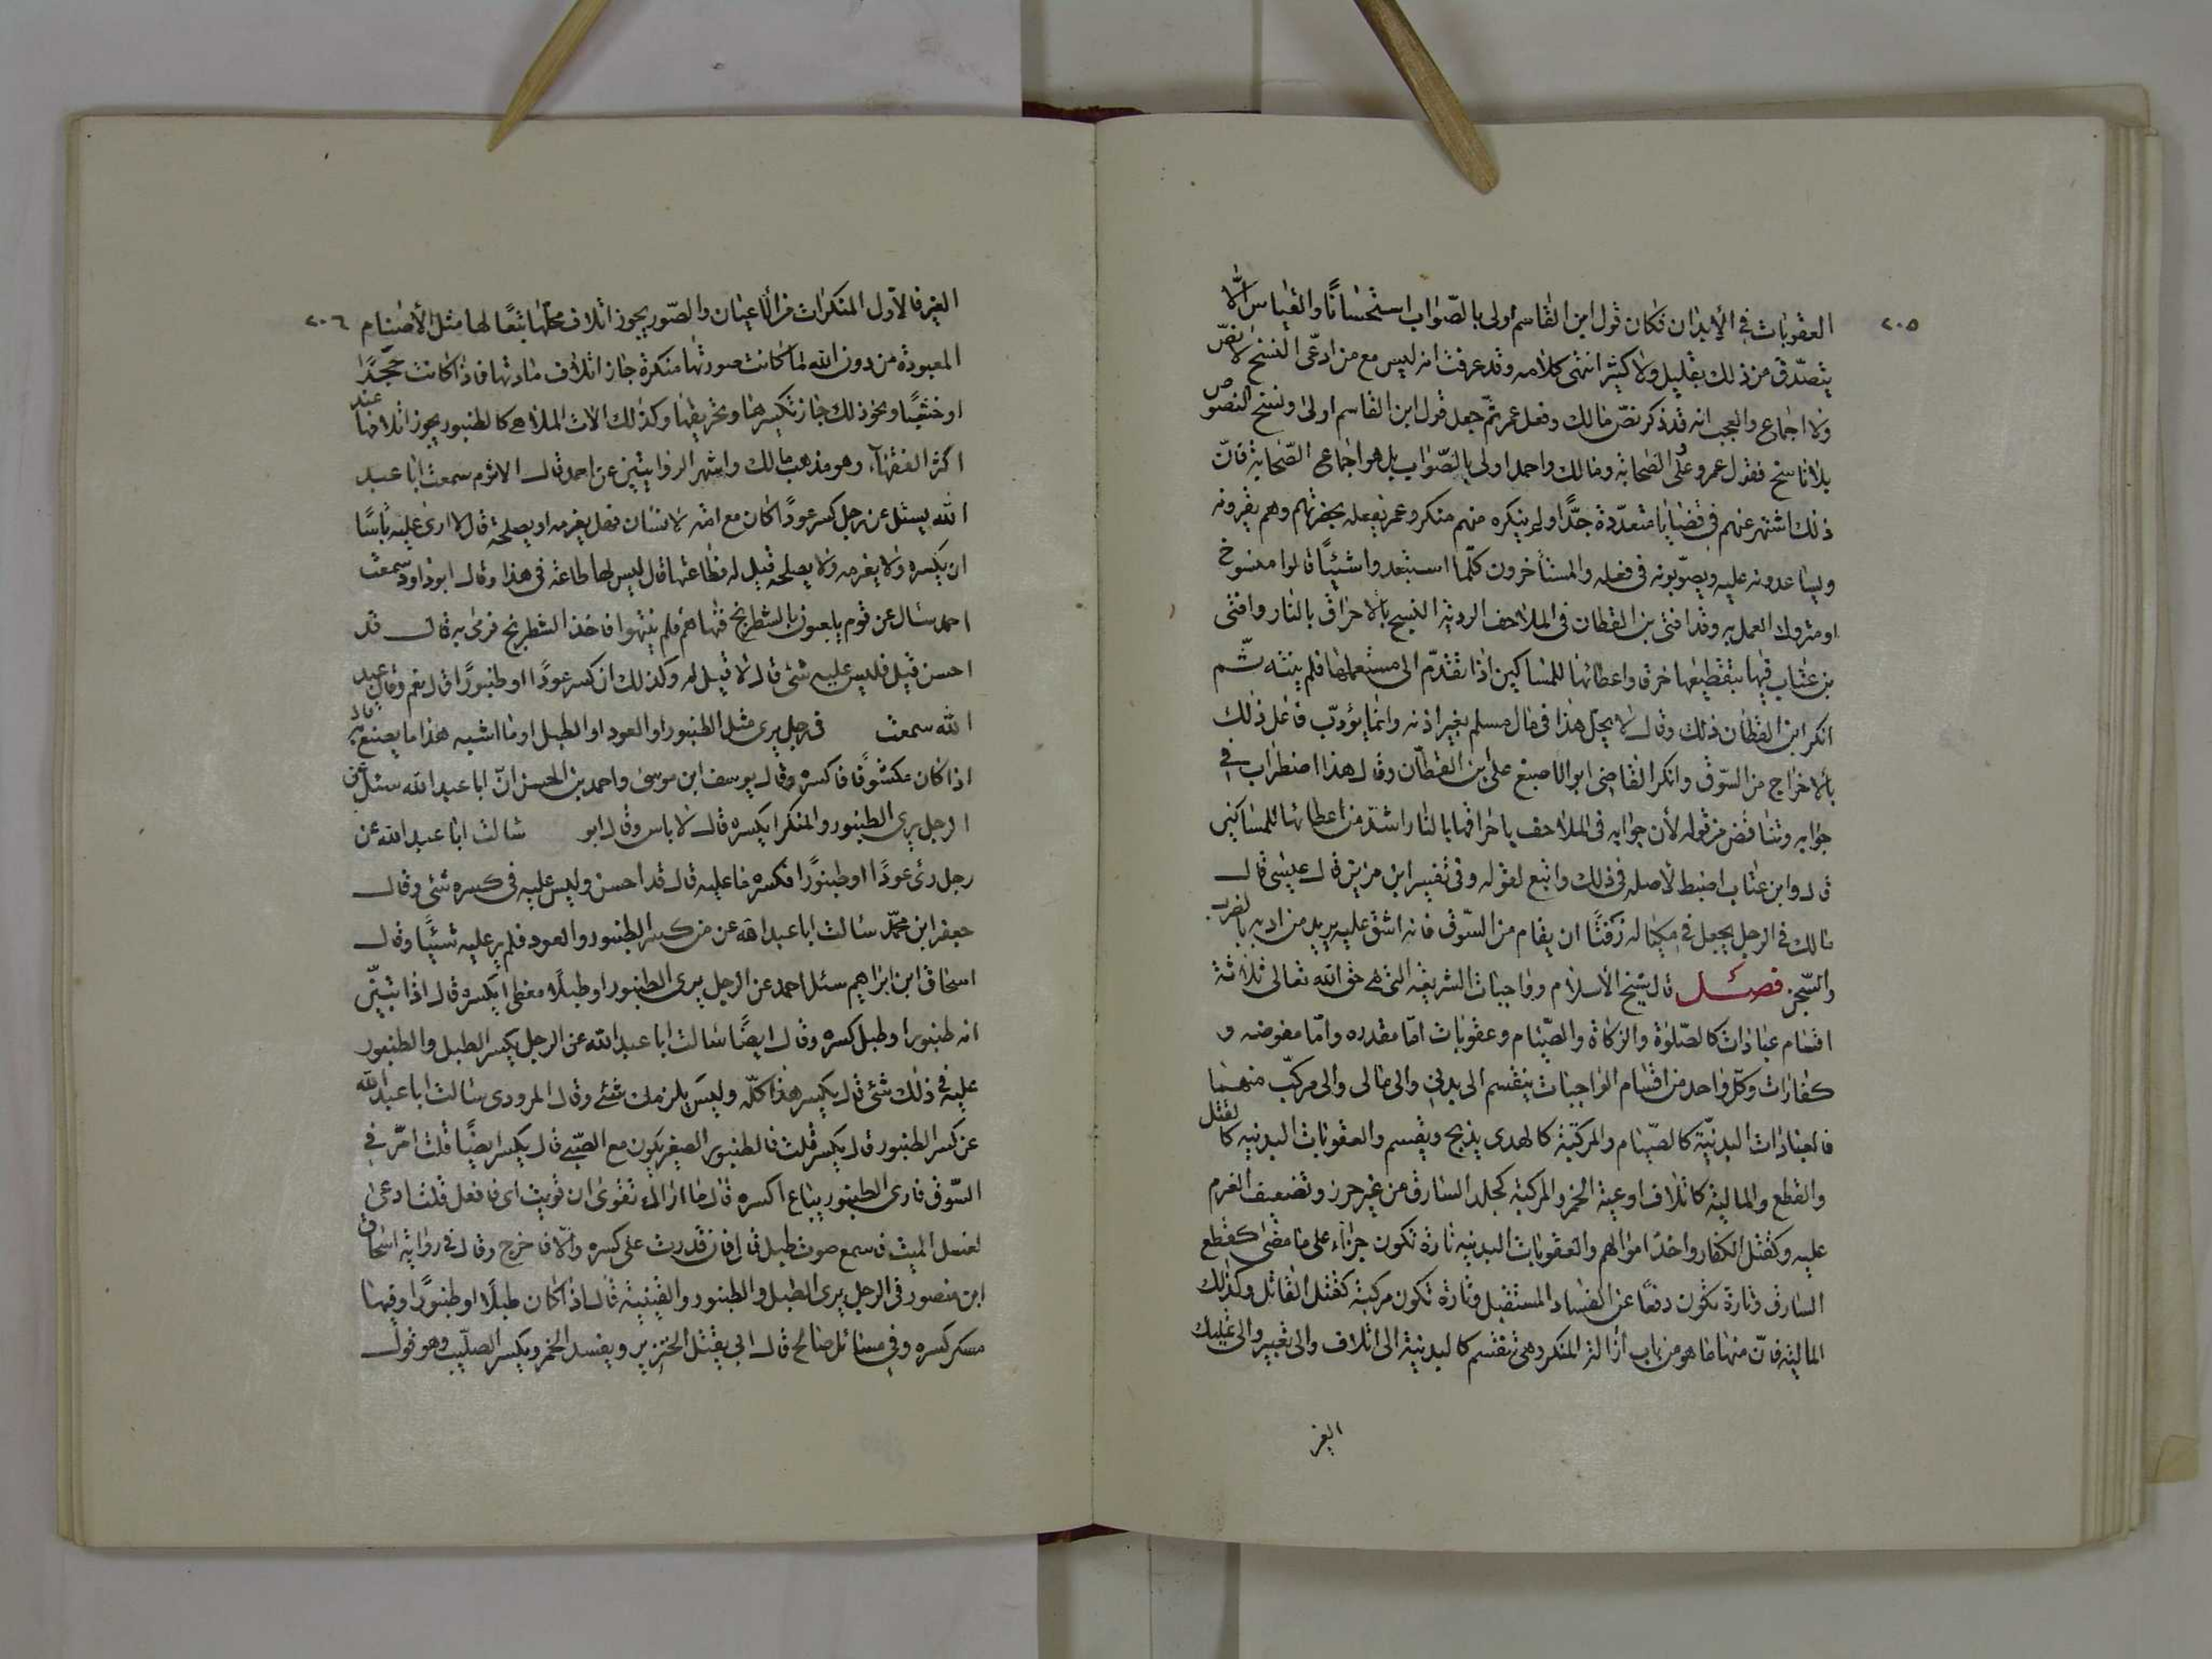 ٢٠٥
العقوبات في الأبدان فكان قول ابن القاسم اولى بالصّواب استحسانًا والقياس الّا
يتصدّق من ذلك بقليل ولا كثير انتهى كلامه وقد عرفت انه ليس مع من ادّعى النسخ لا نصّ
ولا اجماع والعجب انه قد ذكر نصّ مالك وفعل عمر ثمّ جعل قول ابن القاسم اولى ونسخ النصوص
بلا ناسخ فقول عمر وعلى والصحابة ومالك واحمد اولى بالصّواب بل هو اجماع الصّحابة فانّ
ذلك اشتهر عنهم في قضايا متعدّدة جدًّا ولم ينكره منهم منكر وعمر يفعله بحضرتهم وهم يقرونه
ويساعدونه عليه ويصوّبونه في فعله والمتأخرون كلّما استبعدوا شيئًا قالوا منسوخ
او متروك العمل به وقد افتى بن القطان في الملاحف الردية النسيج بالاحراق بالنار وافتى
بن عتاب فيها بتقطيعها خرقا واعطائها للمساكين اذا تقدّم الى مستعملها فلم ينته ثم
انكر ابن القطان ذلك وقال لا يحل هذا في مال مسلم بغير اذنه وانما يؤدّب فاعل ذلك
بالاخراج من السّوق وانكر القاضي ابو الاصبغ على ابن القطّان وقال هذا اضطراب في
جوابه وتناقض من قوله لأن جوابه في الملاحف باحراقها بالنار اشدّ من اعطائها للمساكين
قال وابن عتاب اضبط لأصله في ذلك واتبع لقوله وفي تفسير ابن مزين قال عيسى قال
مالك في الرجل يجعل في مكياله زفتًا ان يقام من السّوق فانه اشق عليه يريد من ادبه بالضرب
والسّجن فصـــل قال شيخ الأسلام وواجبات الشريعة التي هي حق الله تعالى ثلاثة
اقسام عبادات كالصّلوٰة والزكاة والصّيام وعقوبات امّا مقدره وامّا مفوضه و
كفارات وكلّ واحد من اقسام الواجبات ينقسم الى بدني والى مالى والى مركّب منهما
فالعبادات البدنيّة كالصّيام والمركّبة كالهدى يذبح ويقسم والعقوبات البدنيه كا لقتل
والقطع والماليّة كاتلاف اوعية الخمر والمركبة كجلد السارق من غير حرز وتضعيف الغرم
عليه وكقتل الكفار واخذ اموالهم والعقوبات البدنيه تارة تكون جزاء على ما مضى كقطع
السارق وتارة تكون دفعًا عن الفساد المستقبل وتارة تكون مركبة كقتل القاتل وكذلك
الماليّه فانّ منها ما هو من باب ازالة المنكر وهي تنقسم كالبدنية الى اتلاف والى تغيير والى تمليك
الغير
٢٠٦
الغير فالأول المنكرات من الأعيان والصّور يجوز اتلاف محلّها تبعًا لها مثل الأصنام
المعبودة من دون الله لما كانت صورتها منكرة جاز اتلاف مادتها فاذا كانت حجرًا
او خشبًا ونحو ذلك جاز تكسيرها وتحريقها وكذلك الات الملاهي كالطنبور يجوز اتلافها عند
اكثر الفقهآء وهو مذهب مالك واشهر الروايتين عن احمد قال الاثرم سمعت ابا عبد
الله يسئل عن رجل كسر عودًا كان مع امة لانسان فهل يغرمه او يصلحه قال لا ارى عليه بأسًا
ان يكسره ولا يغرمه ولا يصلحه قيل له فطاعتها قال ليس لها طاعة في هذا وقال ابو داود سمعت
احمد سئال عن قوم يلعبون بالشطرنج فنهاهم فلم ينتهوا فاخذ الشطرنج فرمى به قال قد
احسن قيل فليس عليه شئ قال لا قيل له وكذلك ان كسر عودًا او طنبورًا قال نعم وقال عبد
الله سمعت في رجل يرى مثل الطنبور او العود او الطبل او ما اشبه هذا ما يصنع به قال
اذا كان مكشوفًا فاكسره وقال يوسف ابن موسى واحمد بن الحسن انّ ابا عبد الله سئل عن
الرجل يرى الطنبور والمنكر ايكسره قال لا باس وقال ابو سالت ابا عبد الله عن
رجل رئى عودًا او طنبورًا فكسره ما عليه قال قد احسن وليس عليه في كسره شئى وقال
جعفر ابن محمّد سئالت ابا عبد الله عن من كسر الطنبور والعود فلم ير عليه شيئًا وقال
اسحاق ابن ابراهيم سئل احمد عن الرجل يرى الطنبور او طبلًا مغطى ايكسره قال اذا تبيّن
انه طنبورا وطبل كسره وقال ايضًا سالت ابا عبد الله عن الرجل يكسر الطبل والطنبور
عليه في ذلك شئى قال يكسر هذا كلّه وليس يلزمه شئى وقال المرودى سالت ابا عبد الله
عن كسر الطنبور قال يكسر قلت فالطنبور الصغير يكون مع الصّبي قال يكسر ايضًا قلت امرّ في
السّوق فارى الطنبور يباع اكسره قال ما اراك تقوى ان قويت اى فافعل قلت ادعى
لغسل الميت فاسمع صوت طبل قال فان قدرت على كسره والّا فاخرج وقال في رواية اسحاق
ابن منصور في الرجل يرى الطبل والطنبور والقنينة قال اذا كان طبلًا او طنبورًا وفيها
مسكر كسره وفي مسائل صالح قال ابي يقتل الخنزير ويفسد الخمر ويكسر الصليب وهو قول